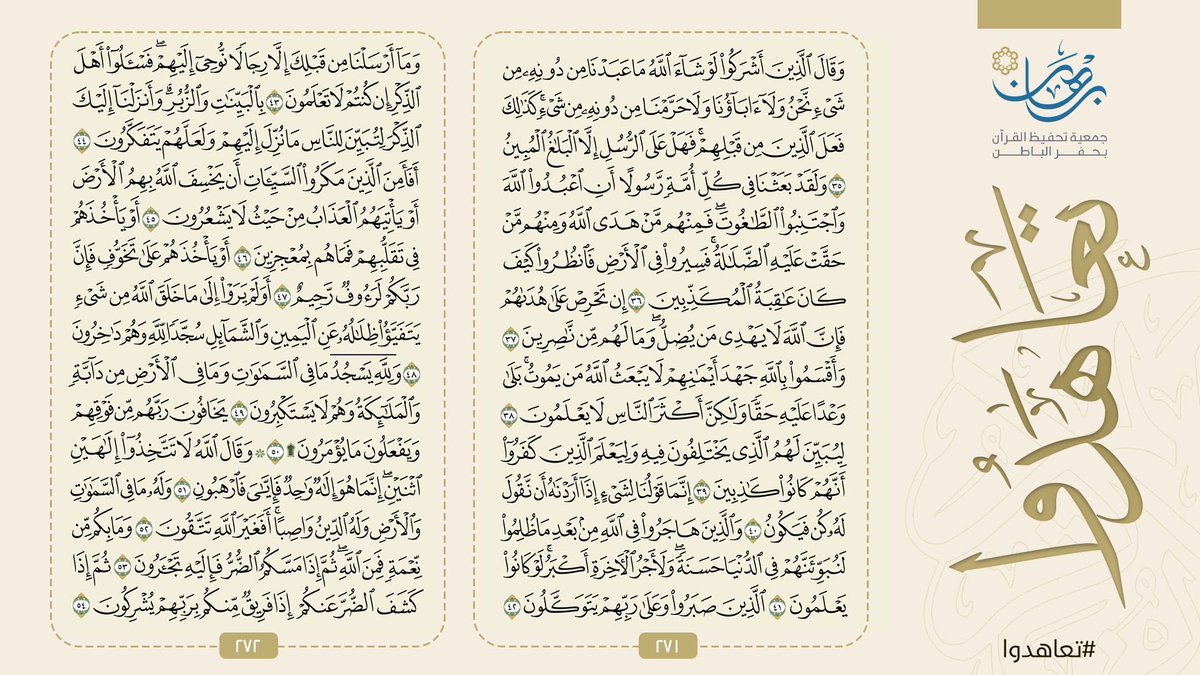 برهان
جمعية تحفيظ القرآن
بحفر الباطن
تعاهدوا
#تعاهدوا
وَقَالَ ٱلَّذِينَ أَشْرَكُوا۟ لَوْ شَآءَ ٱللَّهُ مَا عَبَدْنَا مِن دُونِهِۦ مِن
شَىْءٍ نَّحْنُ وَلَآ ءَابَآؤُنَا وَلَا حَرَّمْنَا مِن دُونِهِۦ مِن شَىْءٍ ۚ كَذَٰلِكَ
فَعَلَ ٱلَّذِينَ مِن قَبْلِهِمْ ۚ فَهَلْ عَلَى ٱلرُّسُلِ إِلَّا ٱلْبَلَٰغُ ٱلْمُبِينُ
٣٥ وَلَقَدْ بَعَثْنَا فِى كُلِّ أُمَّةٍ رَّسُولًا أَنِ ٱعْبُدُوا۟ ٱللَّهَ
وَٱجْتَنِبُوا۟ ٱلطَّٰغُوتَ ۖ فَمِنْهُم مَّنْ هَدَى ٱللَّهُ وَمِنْهُم مَّنْ
حَقَّتْ عَلَيْهِ ٱلضَّلَٰلَةُ ۚ فَسِيرُوا۟ فِى ٱلْأَرْضِ فَٱنظُرُوا۟ كَيْفَ
كَانَ عَٰقِبَةُ ٱلْمُكَذِّبِينَ ٣٦ إِن تَحْرِصْ عَلَىٰ هُدَىٰهُمْ
فَإِنَّ ٱللَّهَ لَا يَهْدِى مَن يُضِلُّ ۖ وَمَا لَهُم مِّن نَّٰصِرِينَ ٣٧
وَأَقْسَمُوا۟ بِٱللَّهِ جَهْدَ أَيْمَٰنِهِمْ ۙ لَا يَبْعَثُ ٱللَّهُ مَن يَمُوتُ ۚ بَلَىٰ
وَعْدًا عَلَيْهِ حَقًّا وَلَٰكِنَّ أَكْثَرَ ٱلنَّاسِ لَا يَعْلَمُونَ ٣٨
لِيُبَيِّنَ لَهُمُ ٱلَّذِى يَخْتَلِفُونَ فِيهِ وَلِيَعْلَمَ ٱلَّذِينَ كَفَرُوٓا۟
أَنَّهُمْ كَانُوا۟ كَٰذِبِينَ ٣٩ إِنَّمَا قَوْلُنَا لِشَىْءٍ إِذَآ أَرَدْنَٰهُ أَن نَّقُولَ
لَهُۥ كُن فَيَكُونُ ٤٠ وَٱلَّذِينَ هَاجَرُوا۟ فِى ٱللَّهِ مِنۢ بَعْدِ مَا ظُلِمُوا۟
لَنُبَوِّئَنَّهُمْ فِى ٱلدُّنْيَا حَسَنَةً ۖ وَلَأَجْرُ ٱلْءَاخِرَةِ أَكْبَرُ ۚ لَوْ كَانُوا۟
يَعْلَمُونَ ٤١ ٱلَّذِينَ صَبَرُوا۟ وَعَلَىٰ رَبِّهِمْ يَتَوَكَّلُونَ ٤٢
٢٧١
وَمَآ أَرْسَلْنَا مِن قَبْلِكَ إِلَّا رِجَالًا نُّوحِىٓ إِلَيْهِمْ ۖ فَسْـَٔلُوٓا۟ أَهْلَ
ٱلذِّكْرِ إِن كُنتُمْ لَا تَعْلَمُونَ ٤٣ بِٱلْبَيِّنَٰتِ وَٱلزُّبُرِ ۗ وَأَنزَلْنَآ إِلَيْكَ
ٱلذِّكْرَ لِتُبَيِّنَ لِلنَّاسِ مَا نُزِّلَ إِلَيْهِمْ وَلَعَلَّهُمْ يَتَفَكَّرُونَ ٤٤
أَفَأَمِنَ ٱلَّذِينَ مَكَرُوا۟ ٱلسَّيِّـَٔاتِ أَن يَخْسِفَ ٱللَّهُ بِهِمُ ٱلْأَرْضَ
أَوْ يَأْتِيَهُمُ ٱلْعَذَابُ مِنْ حَيْثُ لَا يَشْعُرُونَ ٤٥ أَوْ يَأْخُذَهُمْ
فِى تَقَلُّبِهِمْ فَمَا هُم بِمُعْجِزِينَ ٤٦ أَوْ يَأْخُذَهُمْ عَلَىٰ تَخَوُّفٍ فَإِنَّ
رَبَّكُمْ لَرَءُوفٌ رَّحِيمٌ ٤٧ أَوَلَمْ يَرَوْا۟ إِلَىٰ مَا خَلَقَ ٱللَّهُ مِن شَىْءٍ
يَتَفَيَّؤُا۟ ظِلَٰلُهُۥ عَنِ ٱلْيَمِينِ وَٱلشَّمَآئِلِ سُجَّدًا لِّلَّهِ وَهُمْ دَٰخِرُونَ
٤٨ وَلِلَّهِ يَسْجُدُ مَا فِى ٱلسَّمَٰوَٰتِ وَمَا فِى ٱلْأَرْضِ مِن دَآبَّةٍ
وَٱلْمَلَٰٓئِكَةُ وَهُمْ لَا يَسْتَكْبِرُونَ ٤٩ يَخَافُونَ رَبَّهُم مِّن فَوْقِهِمْ
وَيَفْعَلُونَ مَا يُؤْمَرُونَ ۩ ٥٠ ۞ وَقَالَ ٱللَّهُ لَا تَتَّخِذُوٓا۟ إِلَٰهَيْنِ
ٱثْنَيْنِ ۖ إِنَّمَا هُوَ إِلَٰهٌ وَٰحِدٌ ۖ فَإِيَّٰىَ فَٱرْهَبُونِ ٥١ وَلَهُۥ مَا فِى ٱلسَّمَٰوَٰتِ
وَٱلْأَرْضِ وَلَهُ ٱلدِّينُ وَاصِبًا ۚ أَفَغَيْرَ ٱللَّهِ تَتَّقُونَ ٥٢ وَمَا بِكُم مِّن
نِّعْمَةٍ فَمِنَ ٱللَّهِ ۖ ثُمَّ إِذَا مَسَّكُمُ ٱلضُّرُّ فَإِلَيْهِ تَجْـَٔرُونَ ٥٣ ثُمَّ إِذَا
كَشَفَ ٱلضُّرَّ عَنكُمْ إِذَا فَرِيقٌ مِّنكُم بِرَبِّهِمْ يُشْرِكُونَ ٥٤
٢٧٢